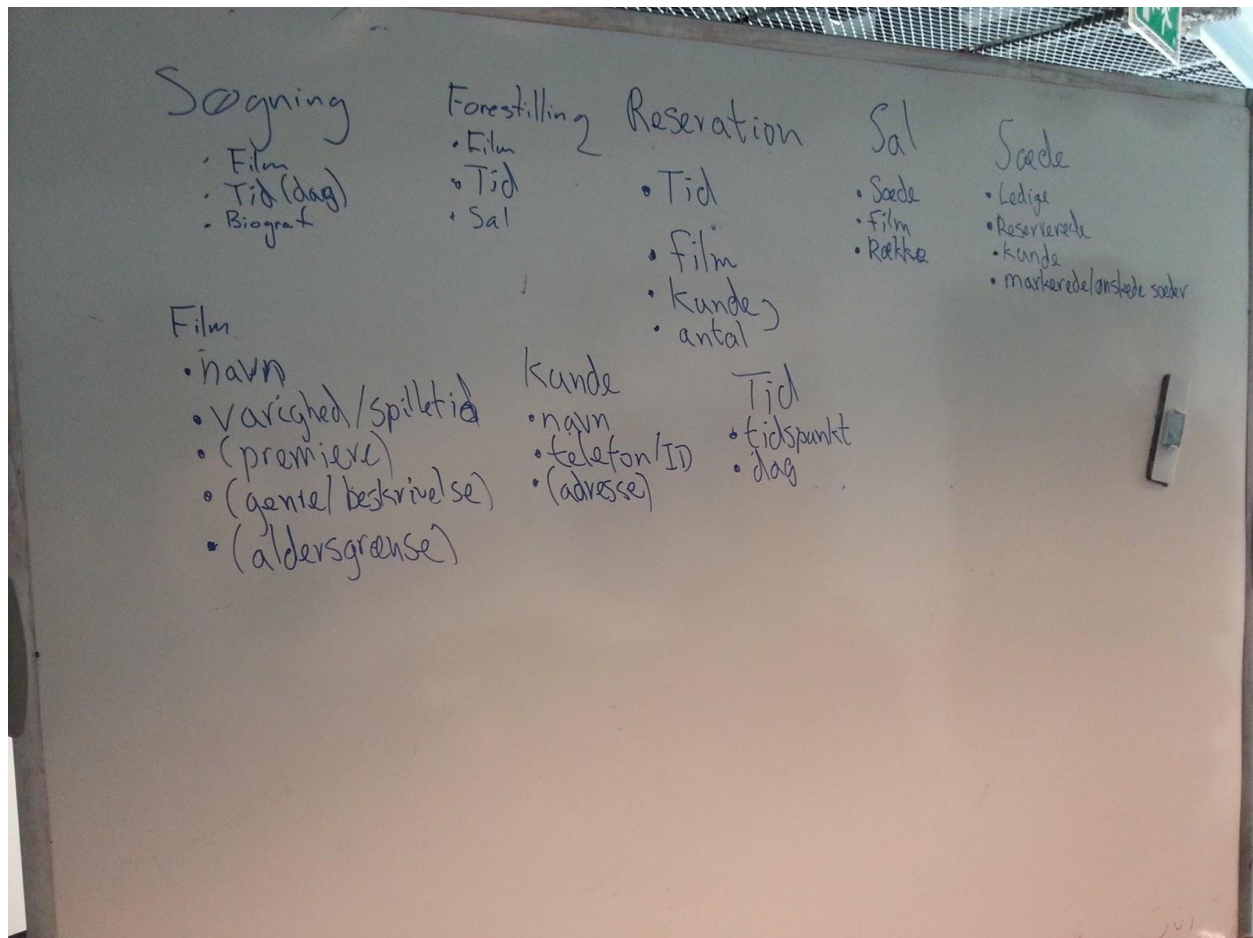 Søgning
· Film
· Tid (dag)
· Biograf
Forestilling
· Film
· Tid
· Sal
Reseration
· Tid
· film
· Kunde
· antal
Sal
· Sæde
· Film
· Række
Sæde
· Ledige
· Reserverede
· Kunde
· markerede/ønskede sæder
Film
· navn
· varighed/spilletid
· (premiere)
· (genre/beskrivelse)
· (aldersgrænse)
Kunde
· navn
· telefon/ID
· (adresse)
Tid
· tidspunkt
· dag